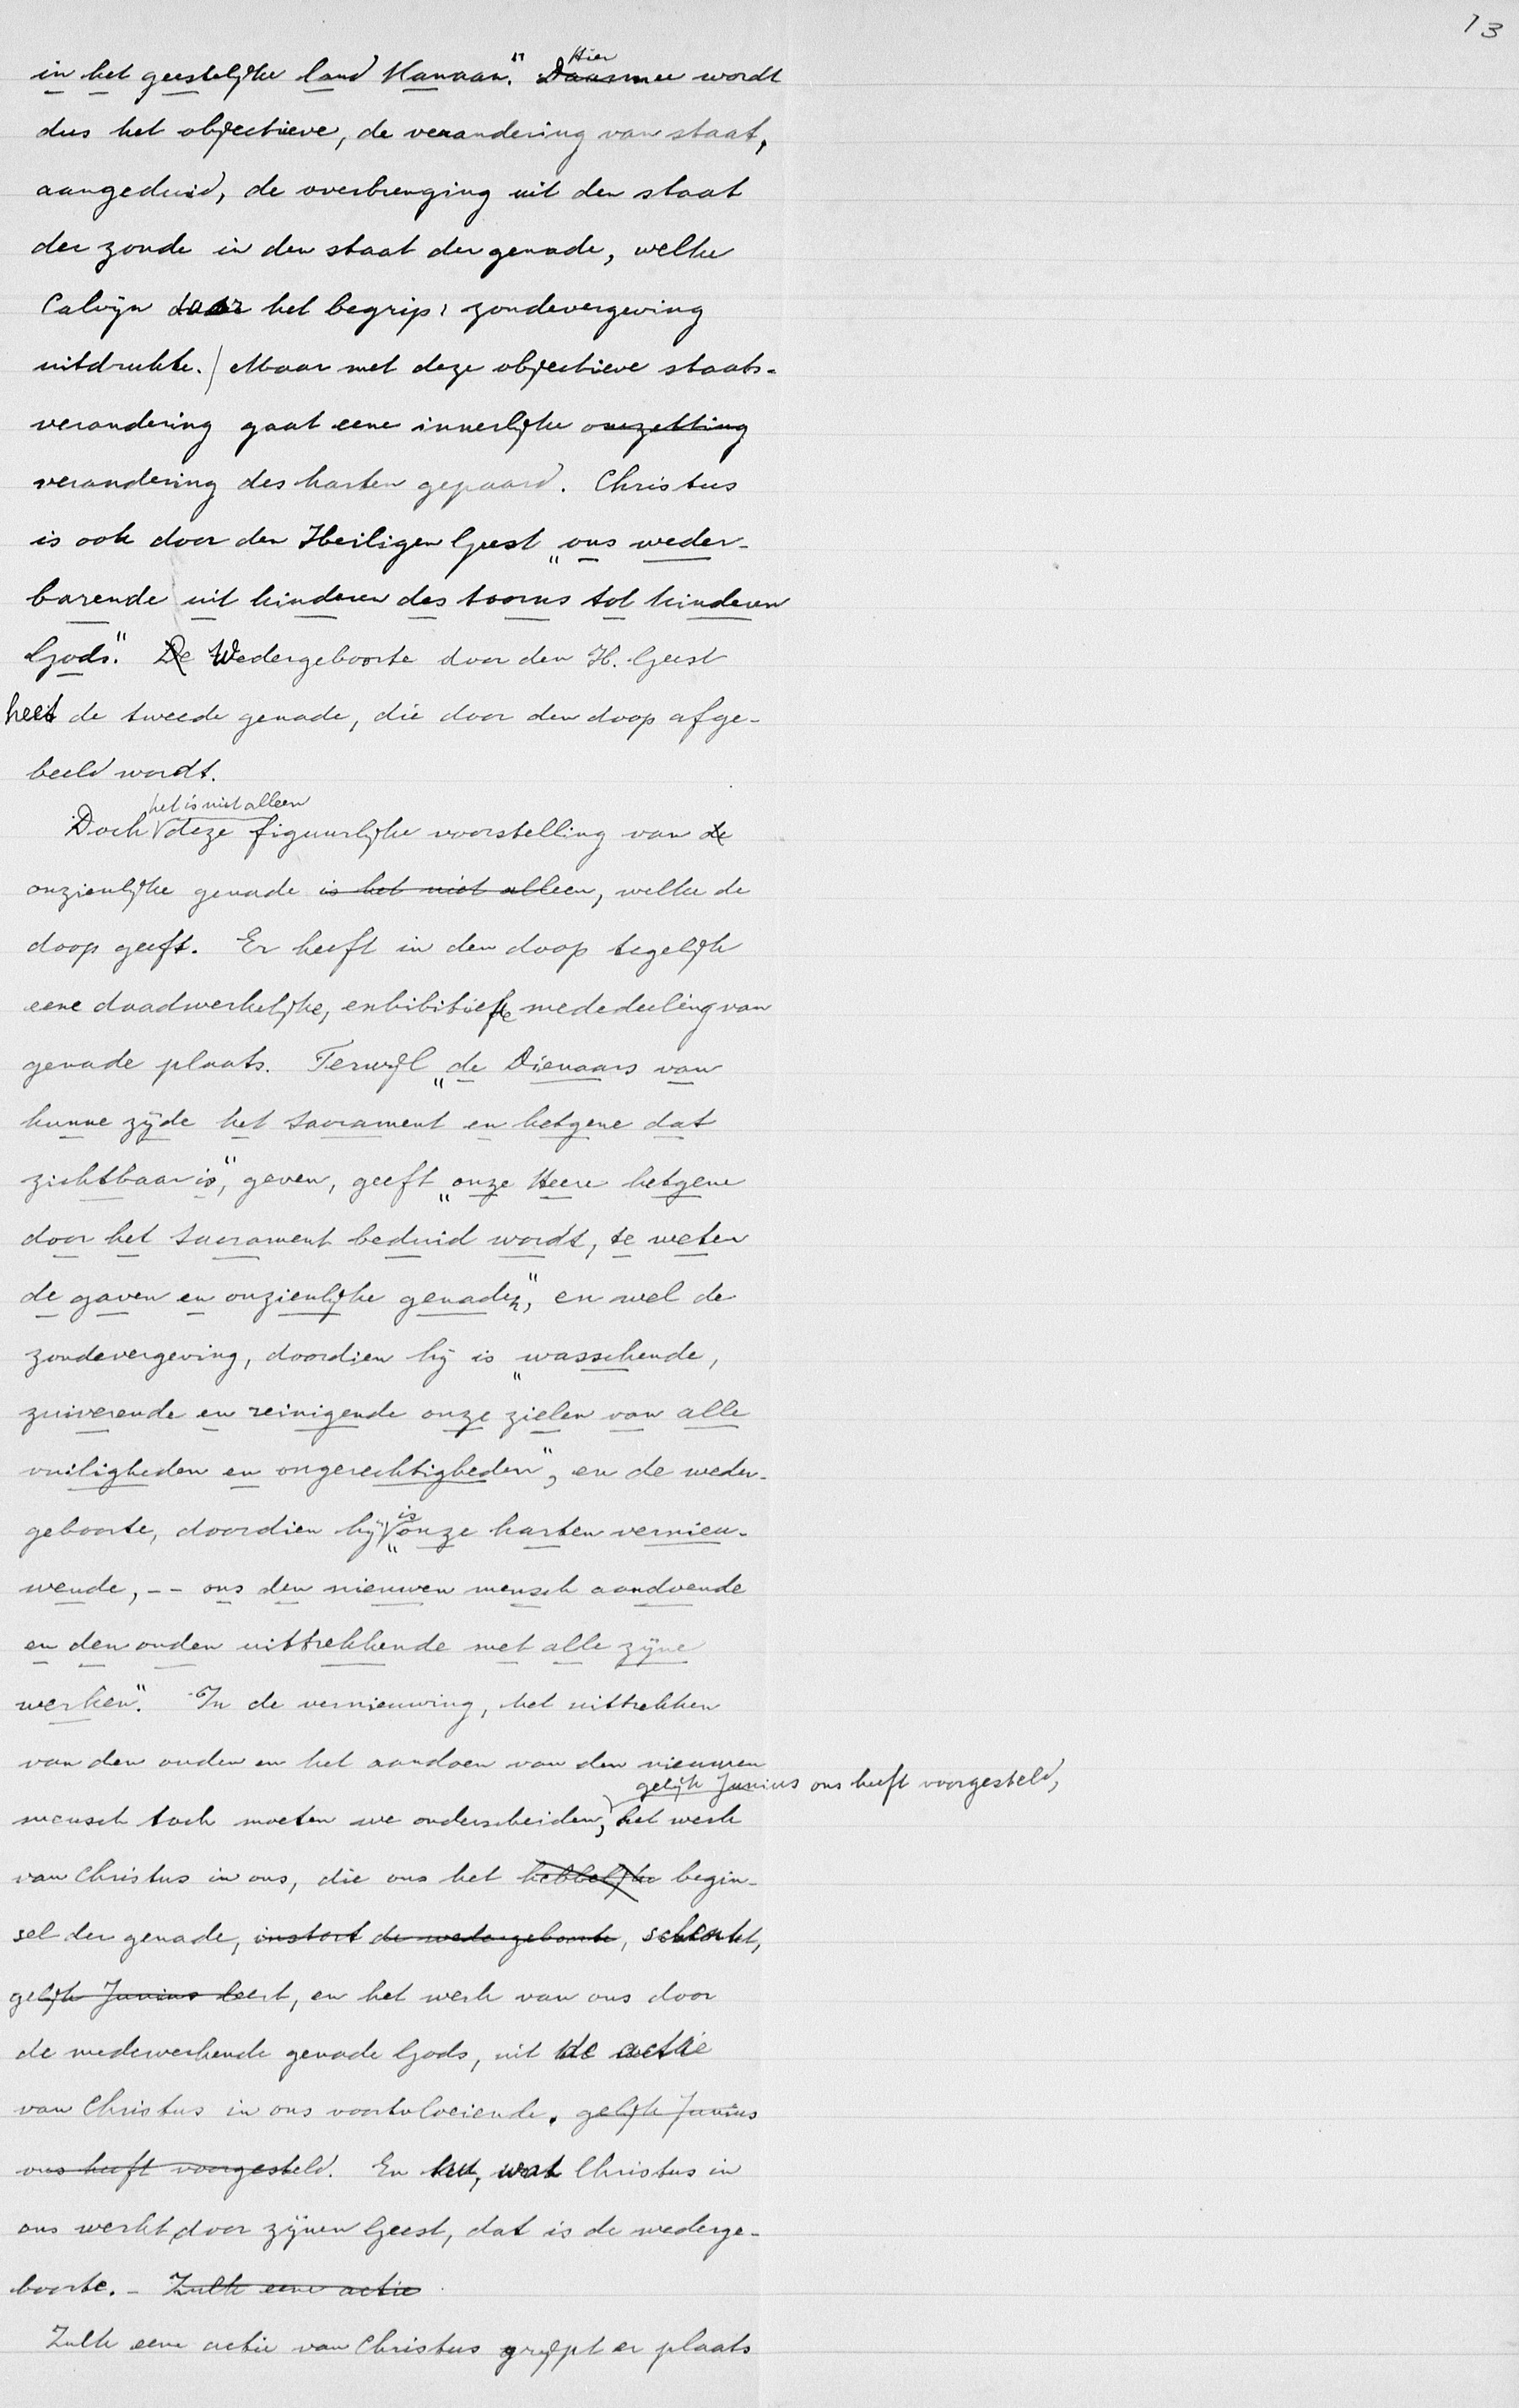 13
in het geestelijke land Kanaan." Hier Daarmee wordt
dus het objectieve, de verandering van staat,
aangeduid, de overbrenging uit den staat
der zonde in den staat der genade, welke
Calvijn door het begrip: zondevergeving
uitdrukte. / Maar met deze objectieve staats-
verandering gaat eene innerlijke omzetting
verandering des harten gepaard. Christus
is ook door den Heiligen Geest „ons weder-
barende uit kinderen des toorns tot kinderen
Gods." De Wedergeboorte door den H. Geest
heet de tweede genade, die door den doop afge-
beeld wordt.
het is niet alleen
Doch deze figuurlijke voorstelling van de
onzienlijke genade is het niet alleen, welke de
doop geeft. Er heeft in den doop tegelijk
eene daadwerkelijke, exhibitieve mededeeling van
genade plaats. Terwijl „de Dienaars van
hunne zijde het sacrament en hetgene dat
zichtbaar is", geven, geeft „onze Heere hetgene
door het sacrament beduid wordt, te weten
de gaven en onzienlijke genaden", en wel de
zondevergeving, doordien hij is „wasschende,
zuiverende en reinigende onze zielen van alle
vuiligheden en ongerechtigheden", en de weder-
geboorte, doordien hij is „onze harten vernieu-
wende, -- ons den nieuwen mensch aandoende
en den ouden uittrekkende met alle zijne
werken." In de vernieuwing, het uittrekken
van den ouden en het aandoen van den nieuwen
gelijk Junius ons heeft voorgesteld,
mensch toch moeten we onderscheiden, het werk
van Christus in ons, die ons het hebbelijke begin-
sel der genade, instort de wedergeboorte, schenkt,
gelijk Junius leert, en het werk van ons door
de medewerkende genade Gods, uit de actie
van Christus in ons voortvloeiende. gelijk Junius
ons heeft voorgesteld. En nu, wat Christus in
ons werkt door zijnen Geest, dat is de wederge-
boorte. - Zulk eene actie
Zulk eene actie van Christus grijpt er plaats